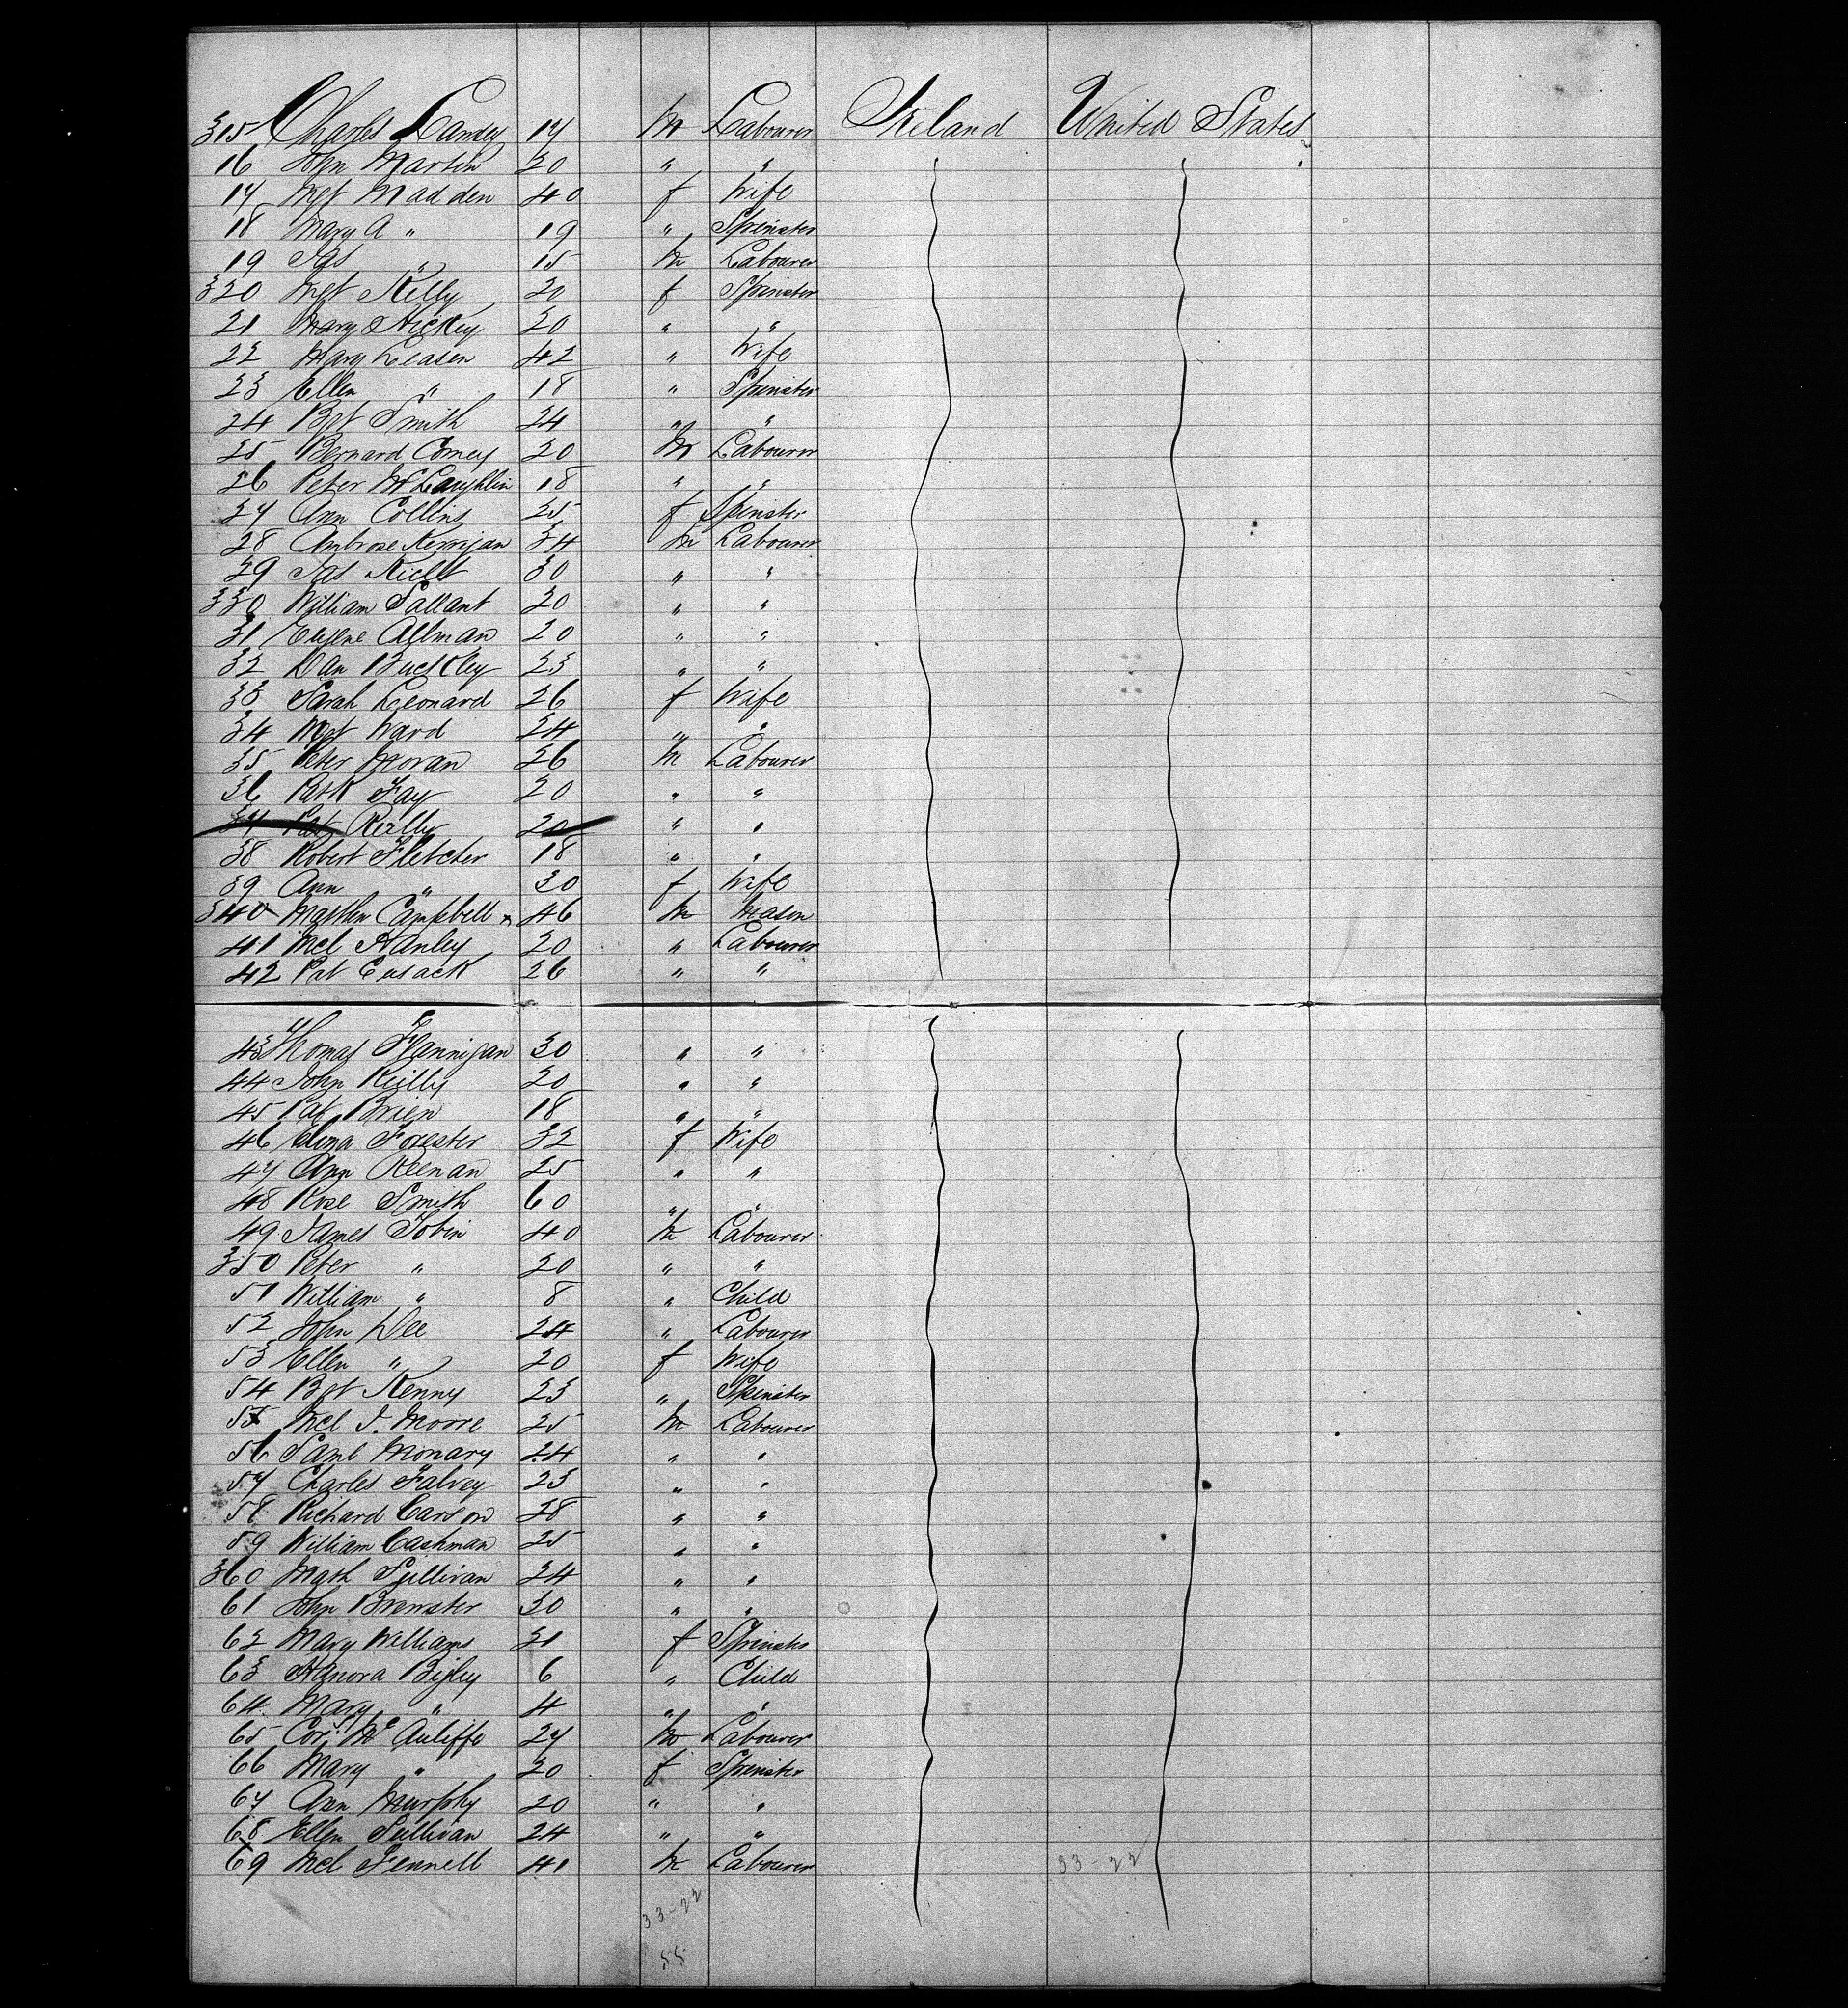 315 Charles Landy 17 m Labourer Ireland United States
16 John Martin 20 " "
17 Mgt Madden 40 f Wife
18 Mary A " 19 " Spinster
19 Jas " 15 m Labourer
320 Mgt Kelly 20 f Spinster
21 Mary Hickey 20 " "
22 Mary Leasen 42 " Wife
23 Ellen " 18 " Spinster
24 Bgt Smith 24 " "
25 Bernard Comey 20 m Labourer
26 Peter McLaughlin 18 " "
27 Ann Collins 25 f Spinster
28 Ambrose Kerrigan 34 m Labourer
29 Jas Kielt 30 " "
330 William Sallant 20 " "
31 Eugene Allman 20 " "
32 Dan Buckley 23 " "
33 Sarah Leonard 26 f Wife
34 Mgt Ward 24 " "
35 Peter Moran 26 m Labourer
36 Patk Fay 20 " "
37 Pat Reilly 20 " "
38 Robert Fletcher 18 " "
39 Ann " 30 f Wife
340 Matthew Campbell x 46 m Mason
41 Mcl Hanley 20 " Labourer
42 Pat Cusack 26 " "
43 Thomas Flannigan 30 " "
44 John Reilly 20 " "
45 Pat Brien 18 " "
46 Eliza Forester 32 f Wife
47 Ann Keenan 25 " "
48 Rose Smith 60 " "
49 James Tobin 40 m Labourer
350 Peter " 20 " "
51 William " 8 " Child
52 John Dee 24 " Labourer
53 Ellen " 20 f Wife
54 Bgt Kenny 23 " Spinster
55 Mcl J. Moore 25 m Labourer
56 Saml Monary 24 " "
57 Charles Falvey 23 " "
58 Richard Carson 28 " "
59 William Cashman 25 " "
360 Math Sullivan 24 " "
61 John Brewster 30 " "
62 Mary Williams 21 f Spinster
63 Hanora Bigley 6 " Child
64 Mary " 4 " "
65 Cor: McAuliffe 27 m Labourer
66 Mary " 20 f Spinster
67 Ann Murphy 20 " "
68 Ellen Sullivan 24 " "
69 Mcl Fennell 41 m Labourer 33-22
33-22
55